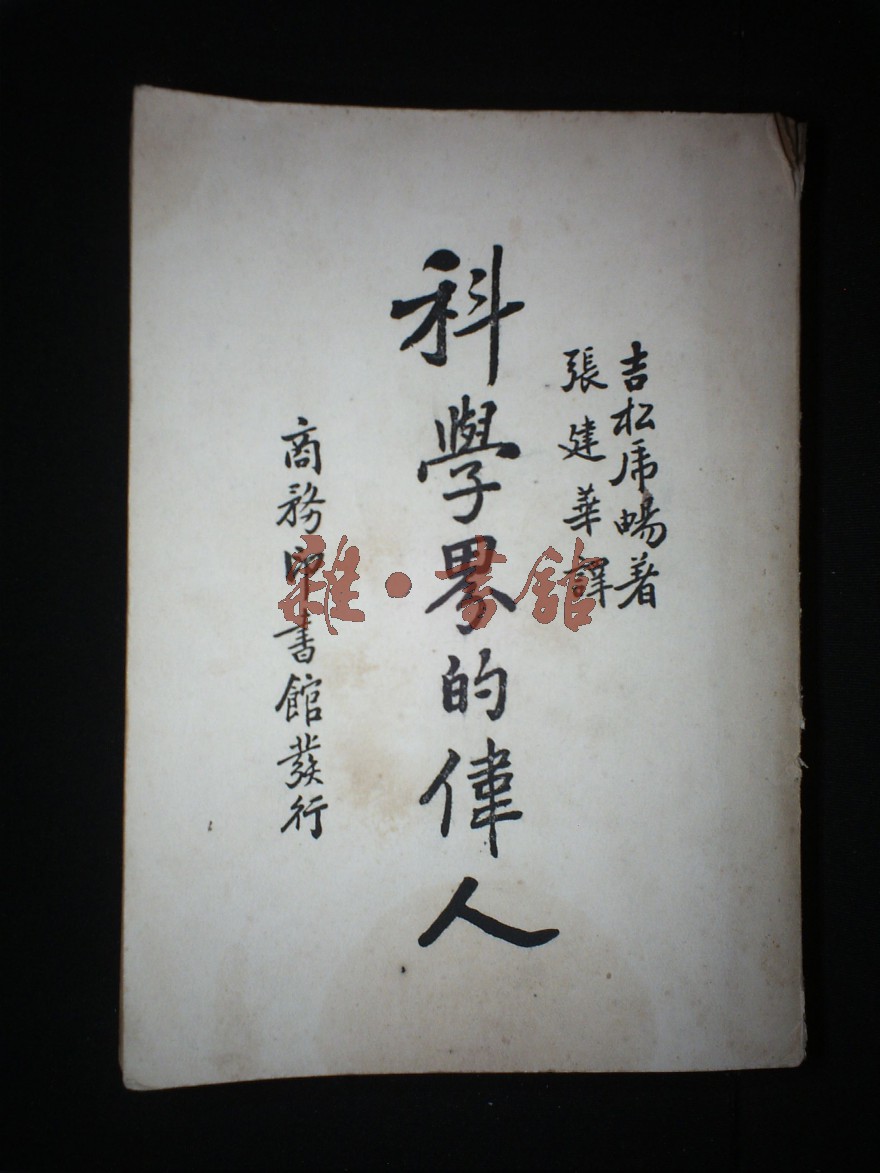 吉松虎暢著
張建華譯
科學界的偉人
商務印書館發行
雜·書館